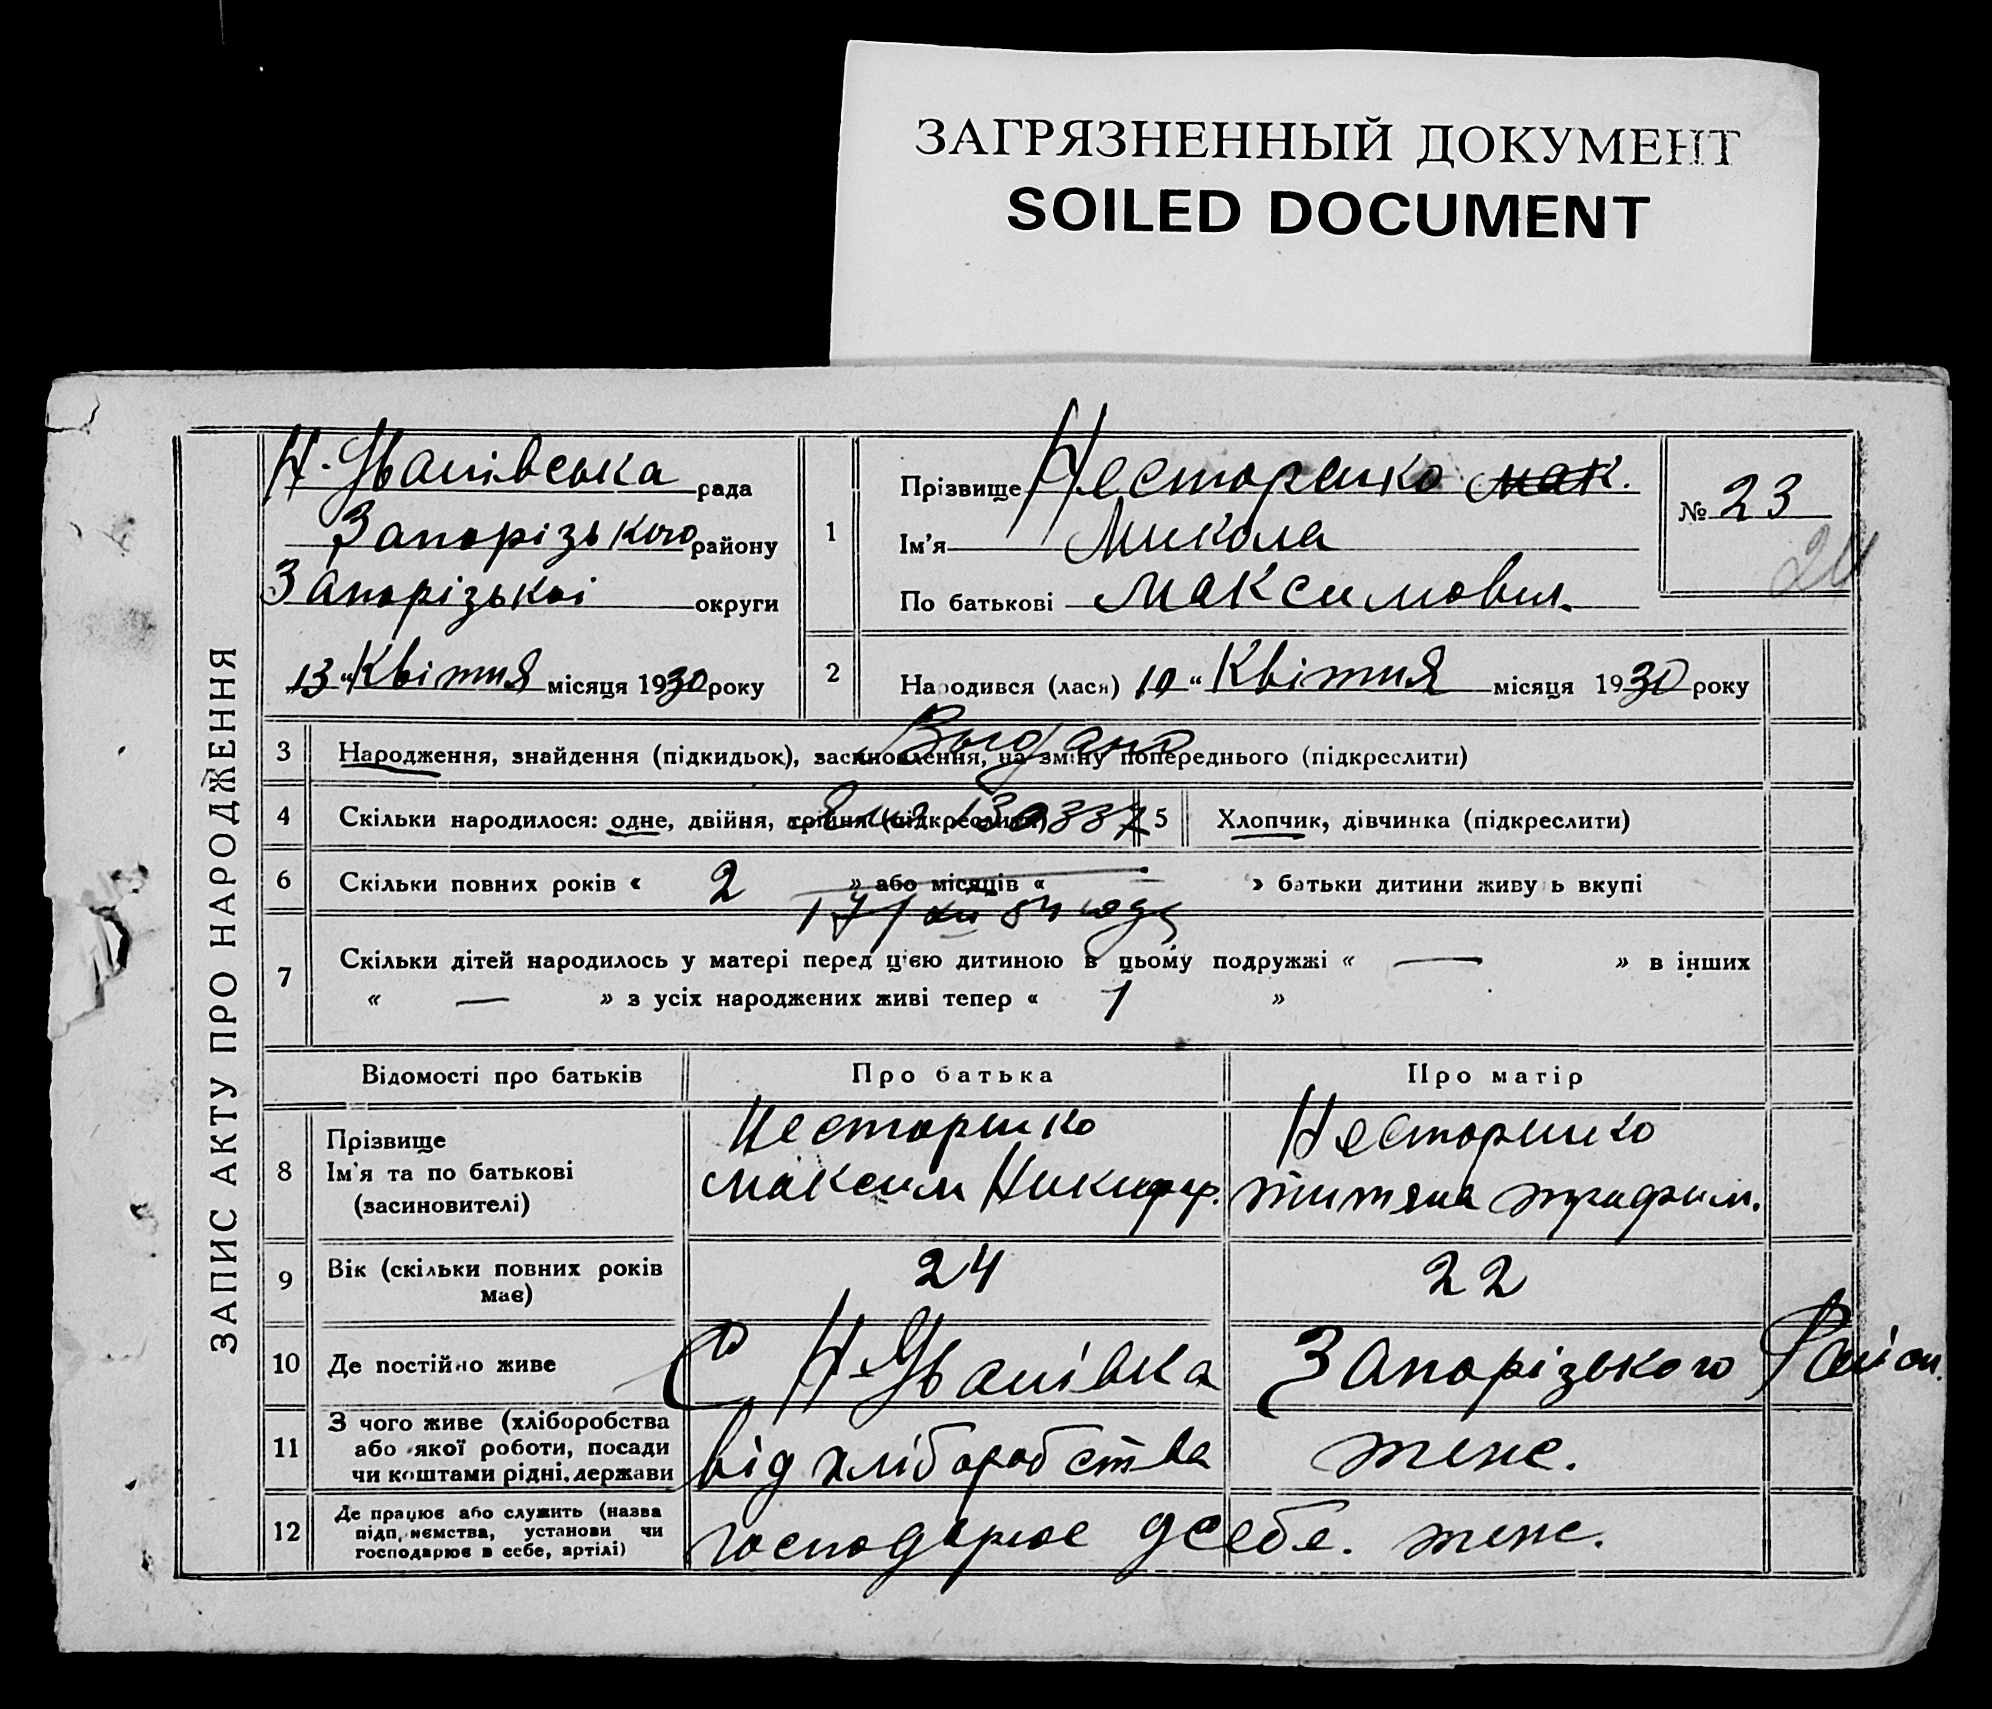 ЗАГРЯЗНЕННЫЙ ДОКУМЕНТ
SOILED DOCUMENT
ЗАПИС АКТУ ПРО НАРОДЖЕННЯ
Н-Іванівська рада
Запорізького району
Запорізької округи
13 "Квітня місяця 1930 року
1
Прізвище Несторенко мак.
Ім'я Микола
По батькові Максимович.
№ 23
2
Народився (лася) 10 " Квітня місяця 1930 року
3 Народження, знайдення (підкидьок), засиновлення, на зміну попереднього (підкреслити)
Выдано
4 Скільки народилося: одне, двійня, трійня (підкреслити)
5 Хлопчик, дівчинка (підкреслити)
6 Скільки повних років « 2 » або місяців « — » батьки дитини живуть вкупі
7 Скільки дітей народилось у матері перед цією дитиною в цьому подружжі « — » в інших
« — » з усіх народжених живі тепер « 1 »
Відомості про батьків
Про батька
Про матір
8 Прізвище
Ім'я та по батькові
(засиновителі)
Несторенко
Максим Никифор.
Несторенко
Титяна Трафим.
9 Вік (скільки повних років
має)
24
22
10 Де постійно живе
С Н-Іванівка Запорізького Район.
11 З чого живе (хліборобства
або якої роботи, посади
чи коштами рідні, держави
від хліборобства
теж.
12 Де працює або служить (назва
підприємства, установи чи
господарює в себе, артілі)
господарює у себе. теж.